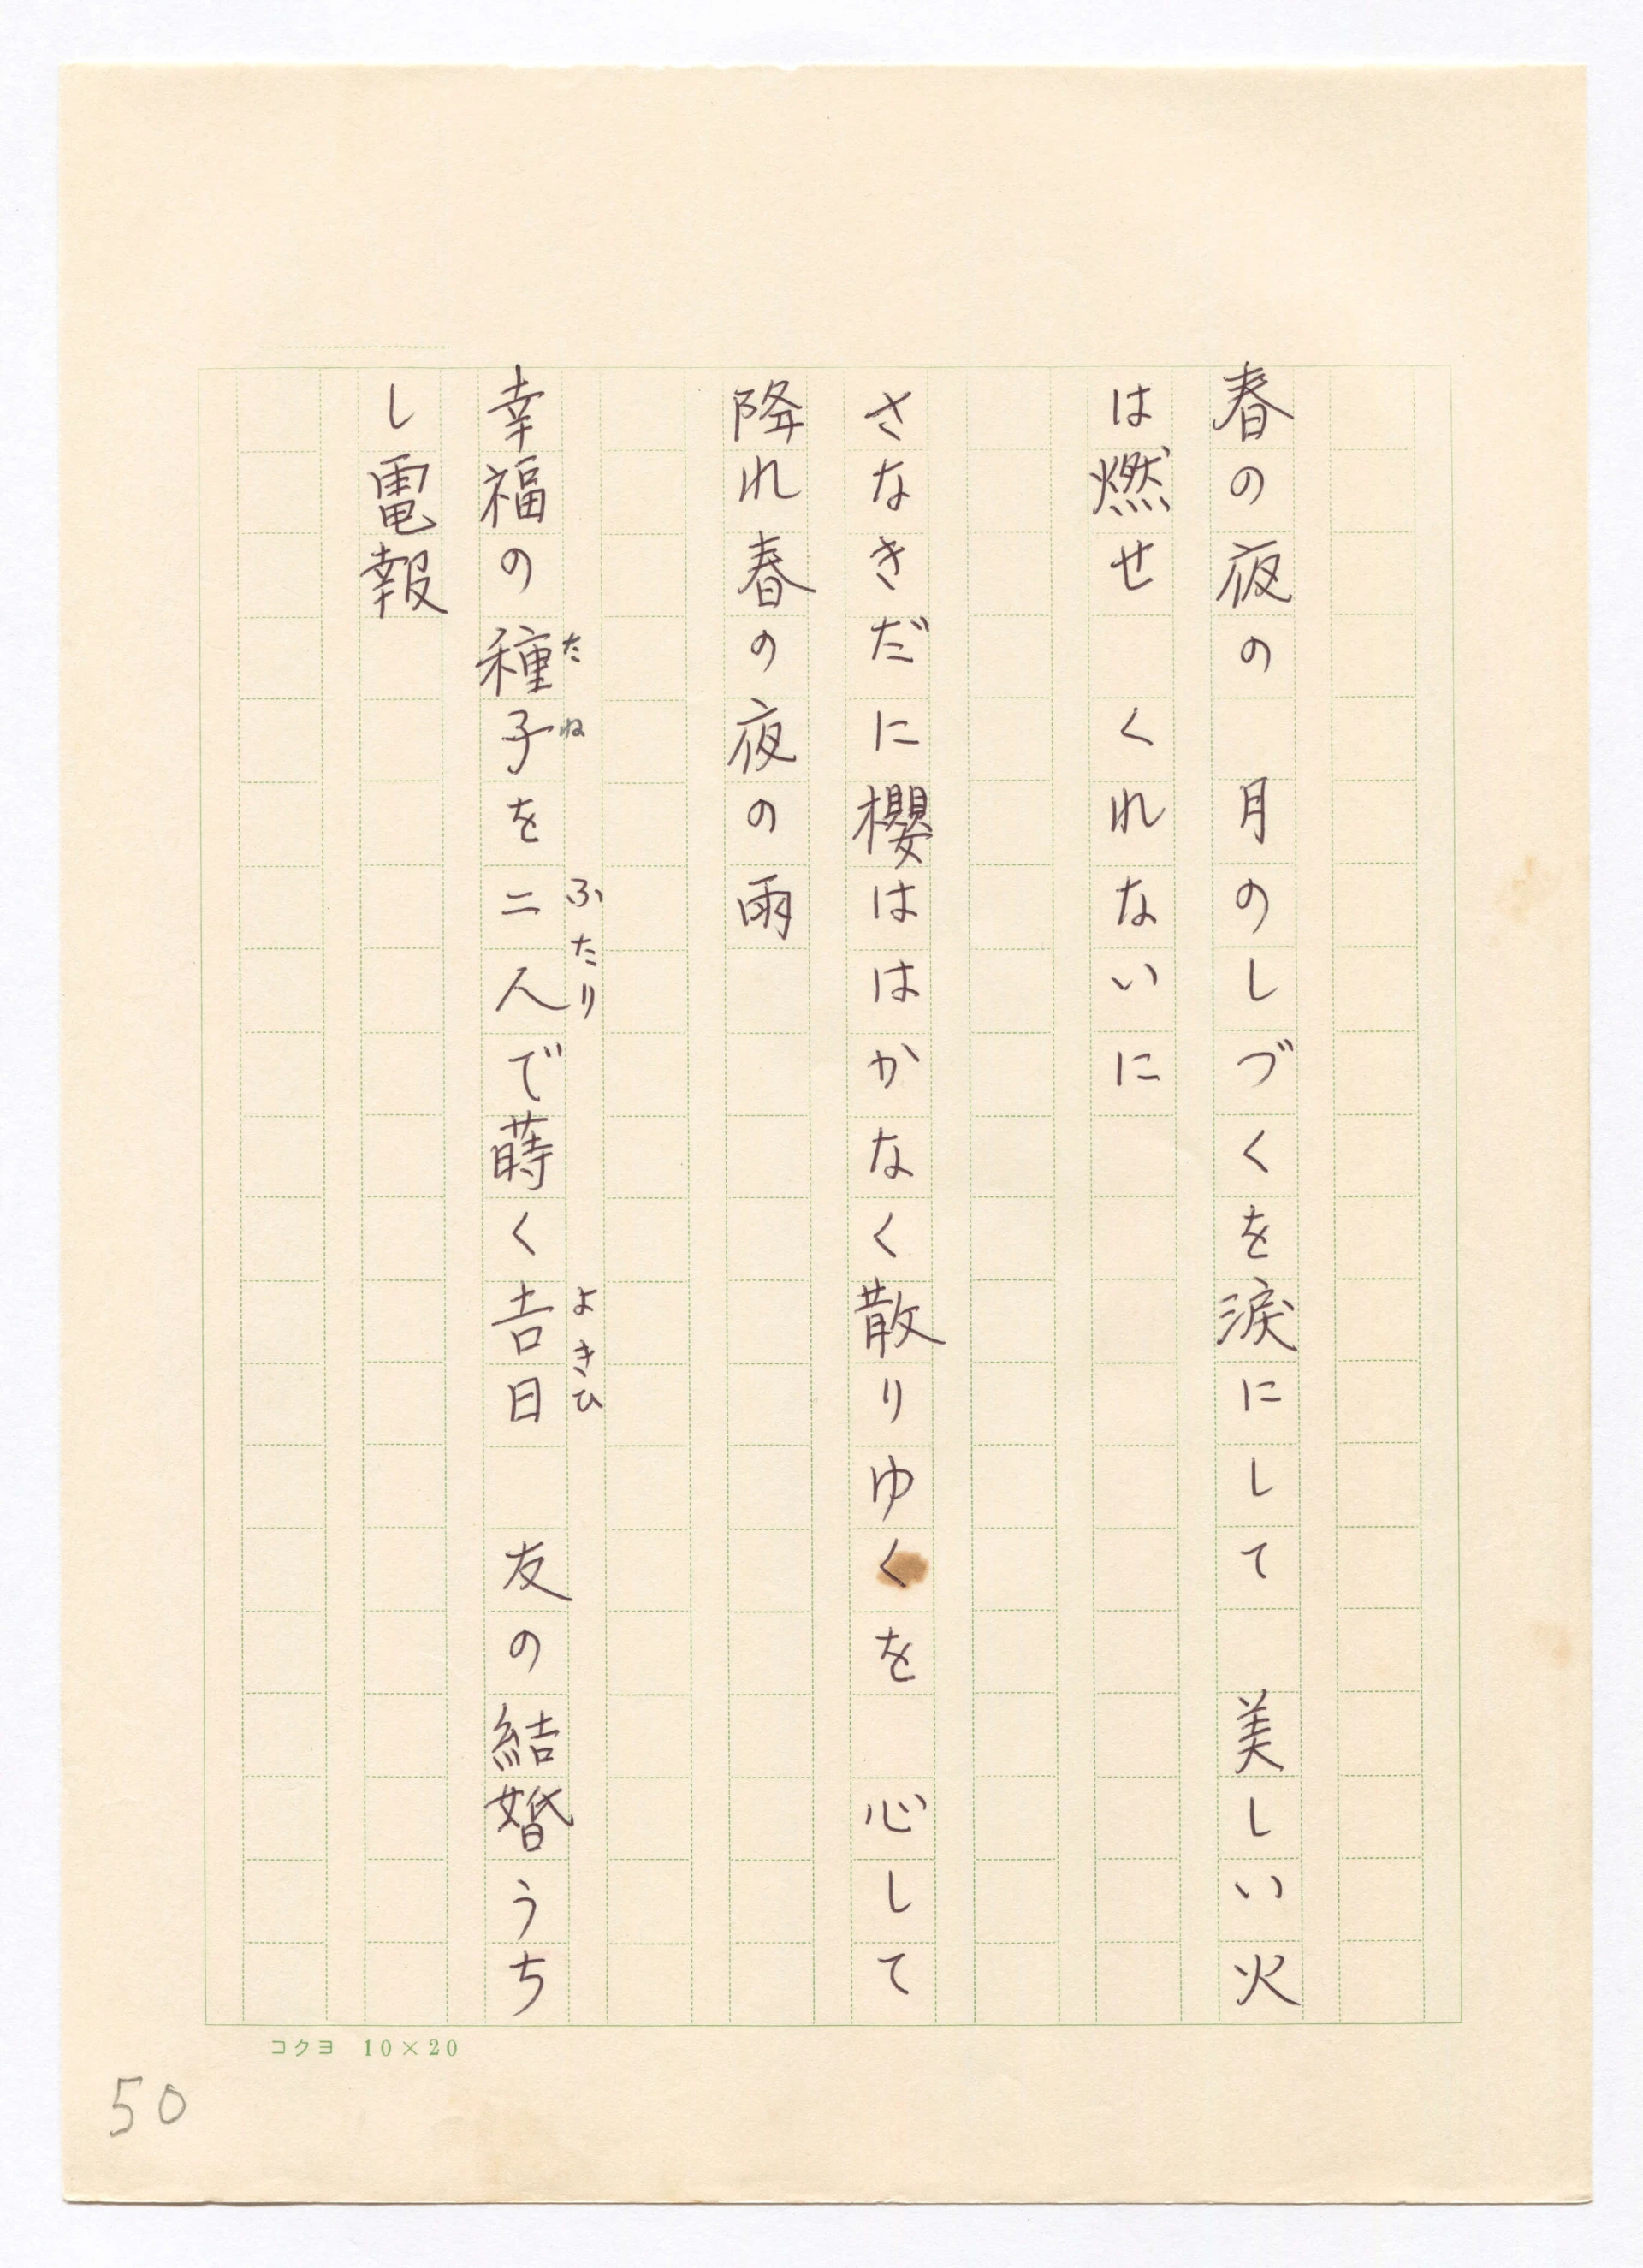 春の夜の　月のしづくを涙にして　美しい火
は燃せ　くれないに
さなきだに櫻ははかなく散りゆくを　心して
降れ春の夜の雨
幸福の種子を二人で蒔く吉日　友の結婚うち
たね
ふたり
よきひ
し電報
コクヨ 10×20
50